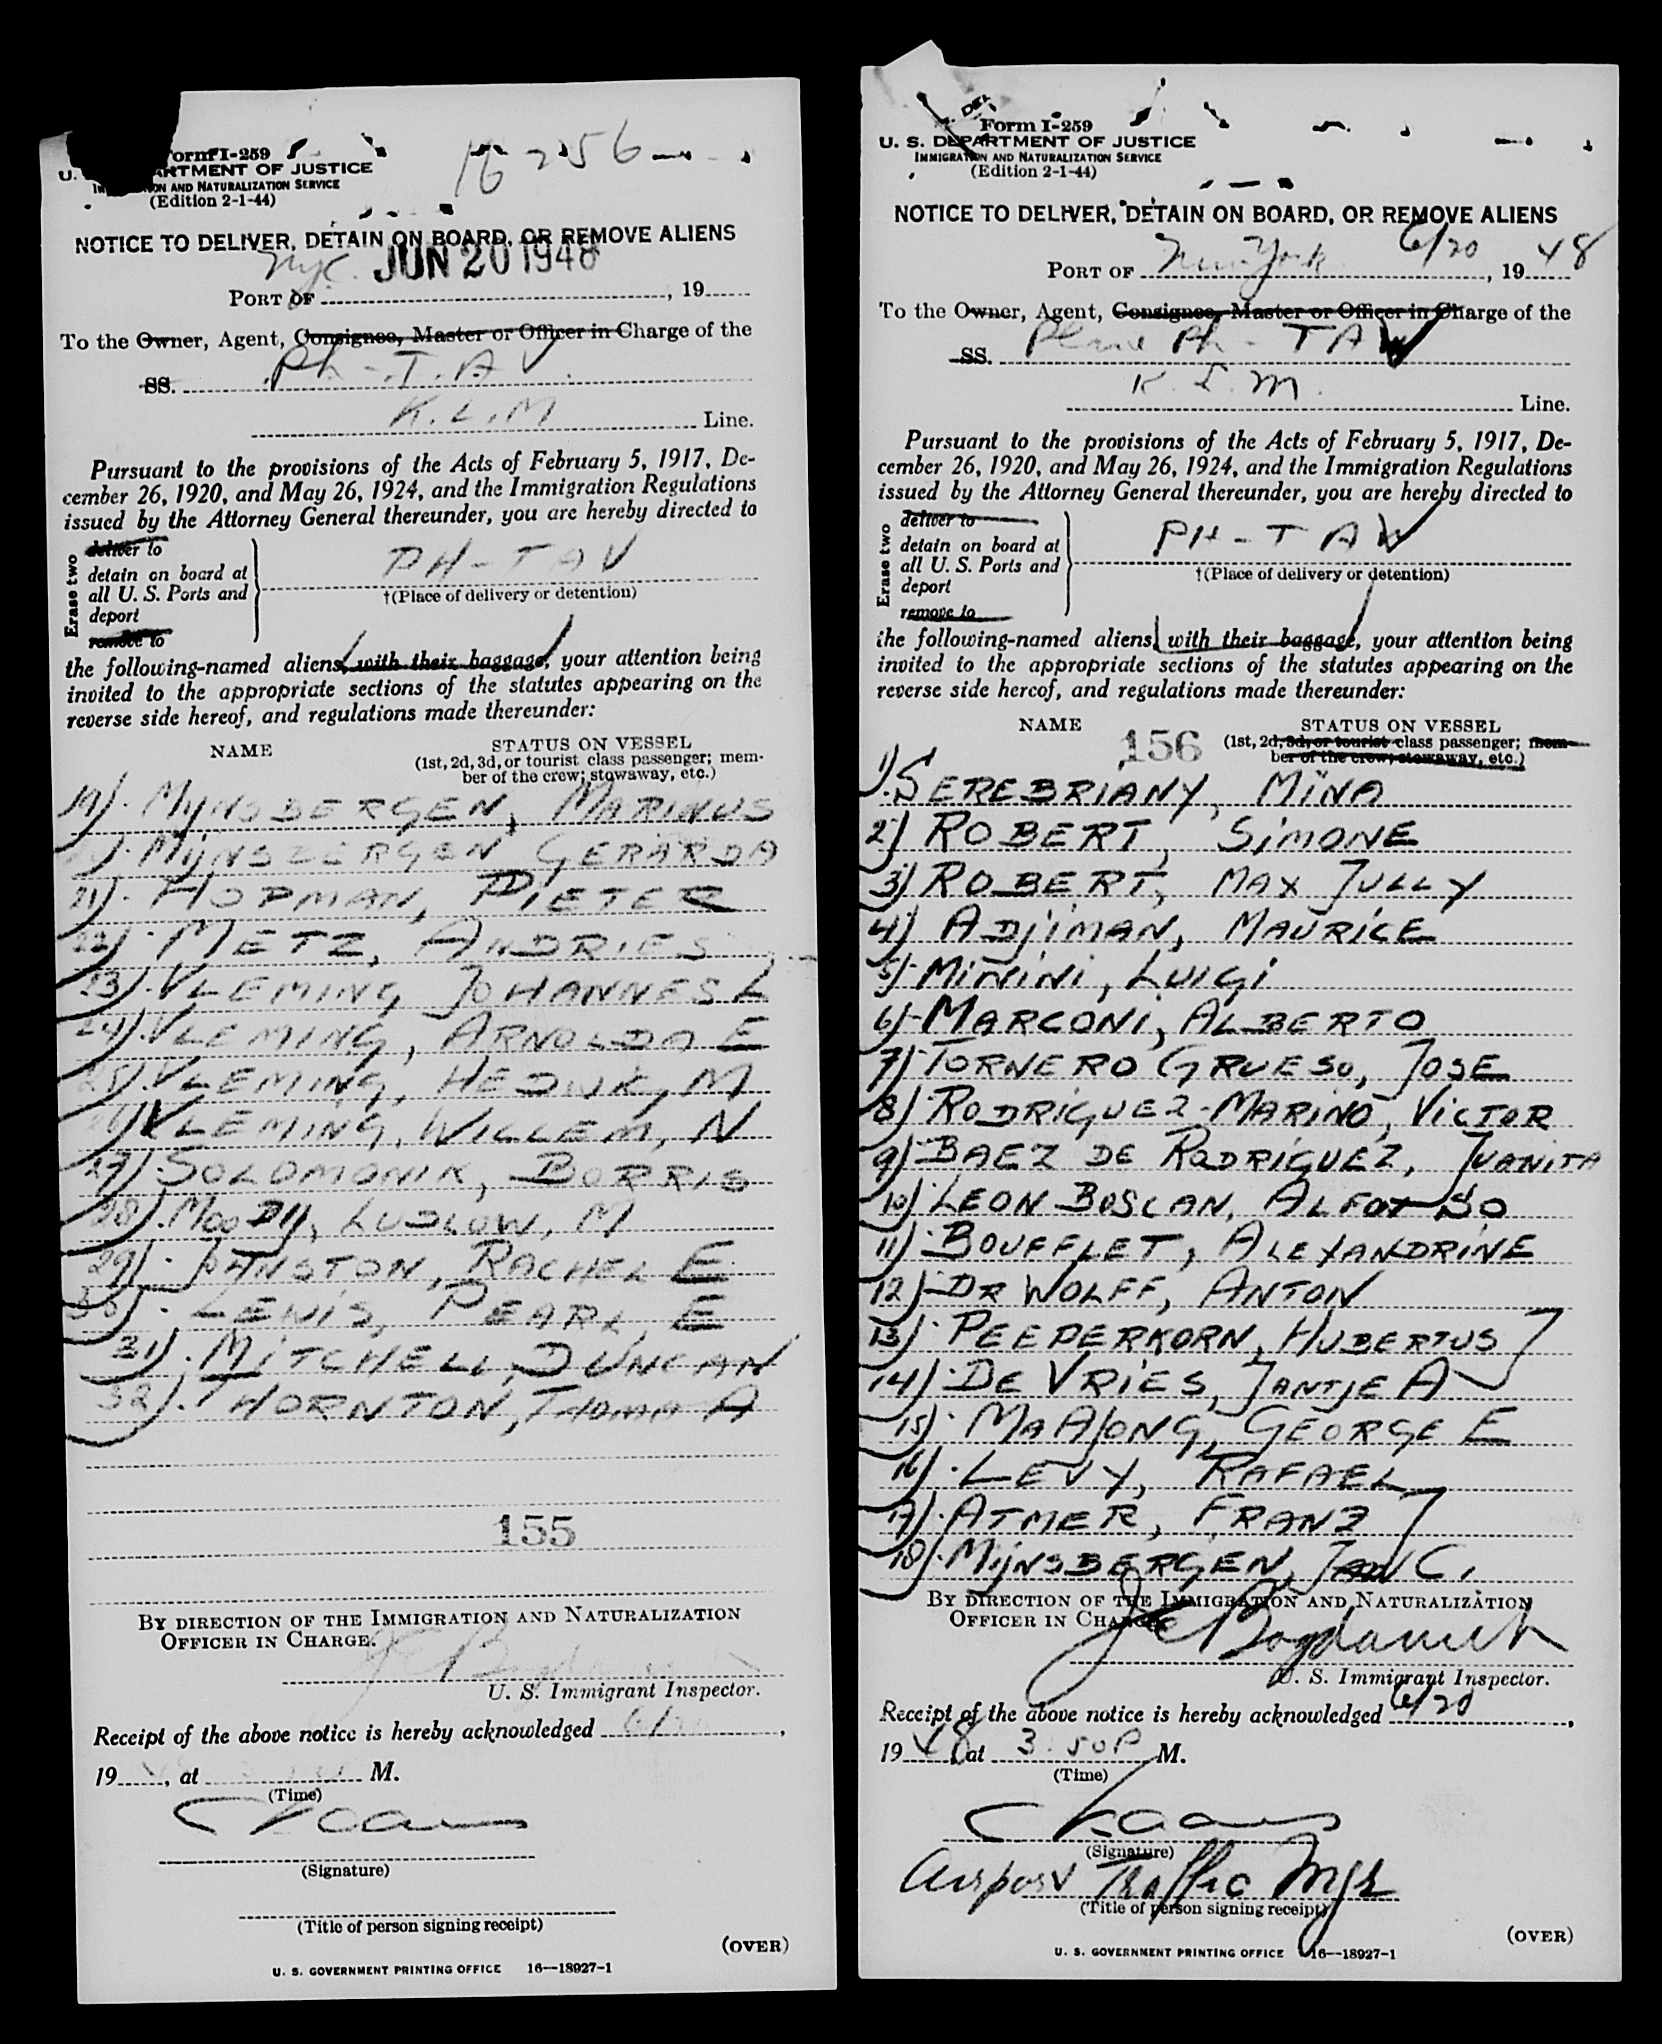 Form I-259
ARTMENT OF JUSTICE
ON AND NATURALIZATION SERVICE
(Edition 2-1-44)
NOTICE TO DELIVER, DETAIN ON BOARD, OR REMOVE ALIENS
NYC. JUN 20 1948
PORT OF , 19
To the Owner, Agent, Consignee, Master or Officer in Charge of the
SS. Ph-T.A.V.
K.L.M Line.
Pursuant to the provisions of the Acts of February 5, 1917, De-
cember 26, 1920, and May 26, 1924, and the Immigration Regulations
issued by the Attorney General thereunder, you are hereby directed to
Erase two
deliver to
detain on board at
all U. S. Ports and
deport
remove to
PH-TAV
†(Place of delivery or detention)
the following-named aliens, with their baggage, your attention being
invited to the appropriate sections of the statutes appearing on the
reverse side hereof, and regulations made thereunder:
NAME STATUS ON VESSEL
(1st, 2d, 3d, or tourist class passenger; mem-
ber of the crew; stowaway, etc.)
19). MIJNSBERGEN, MARINUS
MIJNSBERGEN GERARDA
21). HOPMAN, PIETER
22). METZ, ANDRIES
23). VLEMING JOHANNES L
24). VLEMING, ARNOLDA E
25). VLEMING, HEDWIK, M
VLEMING, WILLEM, N
27). SOLOMONIK, BORRIS
28). MOODY, LUDLOW, M
29). JOHNSTON, RACHEL E
30). LEWIS, PEARL, E
31). MITCHELL, DUNCAN
32). THORNTON, THOMA A
155
BY DIRECTION OF THE IMMIGRATION AND NATURALIZATION
OFFICER IN CHARGE.
U. S. Immigrant Inspector.
Receipt of the above notice is hereby acknowledged 6/20,
19, at M.
(Time)
(Signature)
(Title of person signing receipt)
(OVER)
U. S. GOVERNMENT PRINTING OFFICE 16—18927-1
Form I-259
U. S. DEPARTMENT OF JUSTICE
IMMIGRATION AND NATURALIZATION SERVICE
(Edition 2-1-44)
NOTICE TO DELIVER, DETAIN ON BOARD, OR REMOVE ALIENS
PORT OF New York 6/20, 19 48
To the Owner, Agent, Consignee, Master or Officer in Charge of the
SS. Plane Ph-TAV
K.L.M. Line.
Pursuant to the provisions of the Acts of February 5, 1917, De-
cember 26, 1920, and May 26, 1924, and the Immigration Regulations
issued by the Attorney General thereunder, you are hereby directed to
Erase two
deliver to
detain on board at
all U. S. Ports and
deport
remove to
PH-TAV
†(Place of delivery or detention)
the following-named aliens, with their baggage, your attention being
invited to the appropriate sections of the statutes appearing on the
reverse side hereof, and regulations made thereunder:
NAME 156 STATUS ON VESSEL
(1st, 2d, 3d, or tourist class passenger; mem-
ber of the crew; stowaway, etc.)
1). SEREBRIANY, MINA
2) ROBERT, SIMONE
3) ROBERT, MAX JULLY
4) ADJIMAN, MAURICE
5) MININI, LUIGI
6) MARCONI, ALBERTO
7) TORNERO GRUESO, JOSE
8) RODRIGUEZ-MARINO, VICTOR
9) BAEZ DE RODRIGUEZ, JUANITA
10) LEON BOSCAN, ALFONSO
11) BOUFFLET, ALEXANDRINE
12) DR WOLFF, ANTON
13) PEEPERKORN, HUBERTUS
14) DE VRIES, JANTJE A
15) MAAJONG, GEORGE E
16) LEVY, RAFAEL
17) ATMER, FRANZ
18) MIJNSBERGEN, JAN C.
BY DIRECTION OF THE IMMIGRATION AND NATURALIZATION
OFFICER IN CHARGE.
U. S. Immigrant Inspector.
Receipt of the above notice is hereby acknowledged 6/20,
19 48, at 3:50 P M.
(Time)
(Signature)
Airport Traffic Mgr
(Title of person signing receipt)
(OVER)
U. S. GOVERNMENT PRINTING OFFICE 16—18927-1